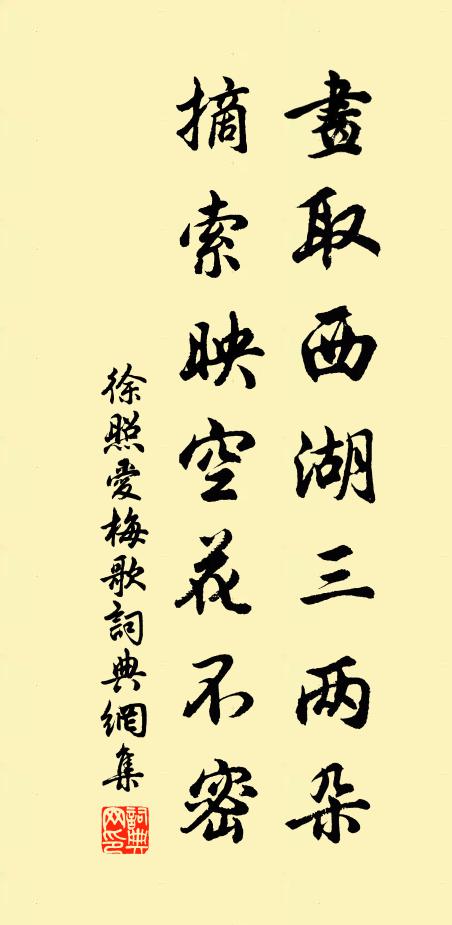 畫取西湖三兩朵
摘索映空花不密
徐照愛梅歌詞典網集
詞典
网印